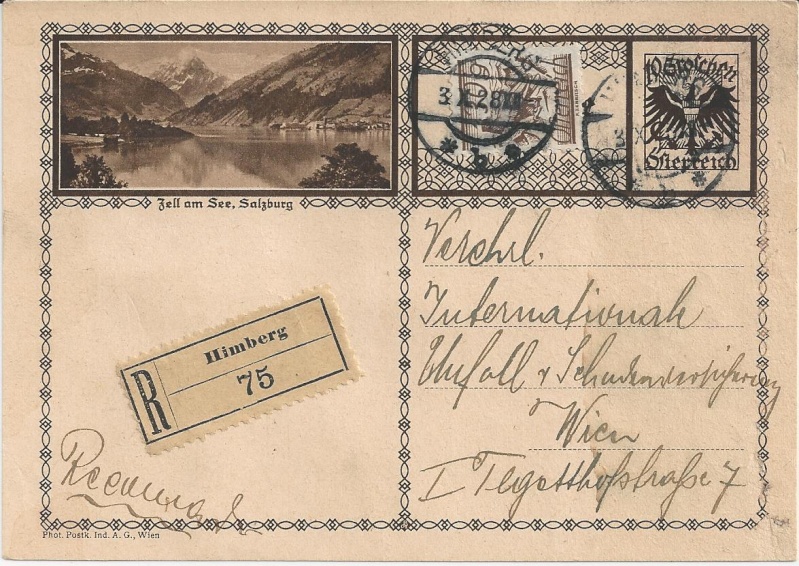 Zell am See, Salzburg
3.X.28
10 Groschen
Österreich
3.X
R
Himberg
75
Verehrl.
Internationale
Unfall v Schadenversicherung
Wien
I Tegetthofstraße 7
Phot. Postk. Ind. A. G., Wien